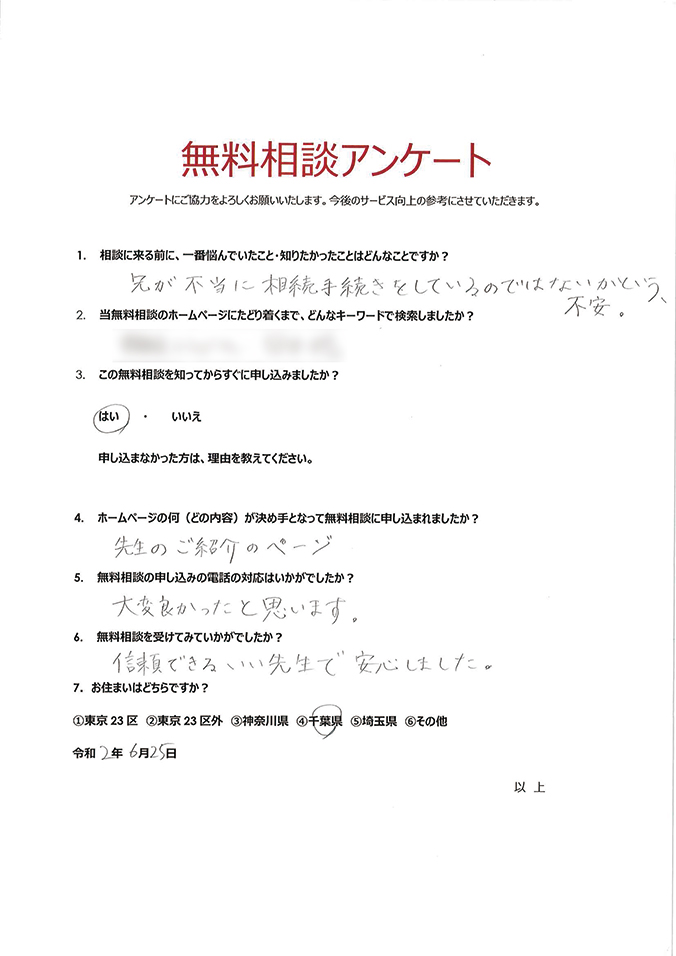 無料相談アンケート
アンケートにご協力をよろしくお願いいたします。今後のサービス向上の参考にさせていただきます。
1. 相談に来る前に、一番悩んでいたこと・知りたかったことはどんなことですか？
兄が不当に相続手続きをしているのではないかという、
不安。
2. 当無料相談のホームページにたどり着くまで、どんなキーワードで検索しましたか？
3. この無料相談を知ってからすぐに申し込みましたか？
はい ・ いいえ
申し込まなかった方は、理由を教えてください。
4. ホームページの何（どの内容）が決め手となって無料相談に申し込まれましたか？
先生のご紹介のページ
5. 無料相談の申し込みの電話の対応はいかがでしたか？
大変良かったと思います。
6. 無料相談を受けてみていかがでしたか？
信頼できるいい先生で安心しました。
7. お住まいはどちらですか？
①東京23区 ②東京23区外 ③神奈川県 ④千葉県 ⑤埼玉県 ⑥その他
令和2年6月25日
以上